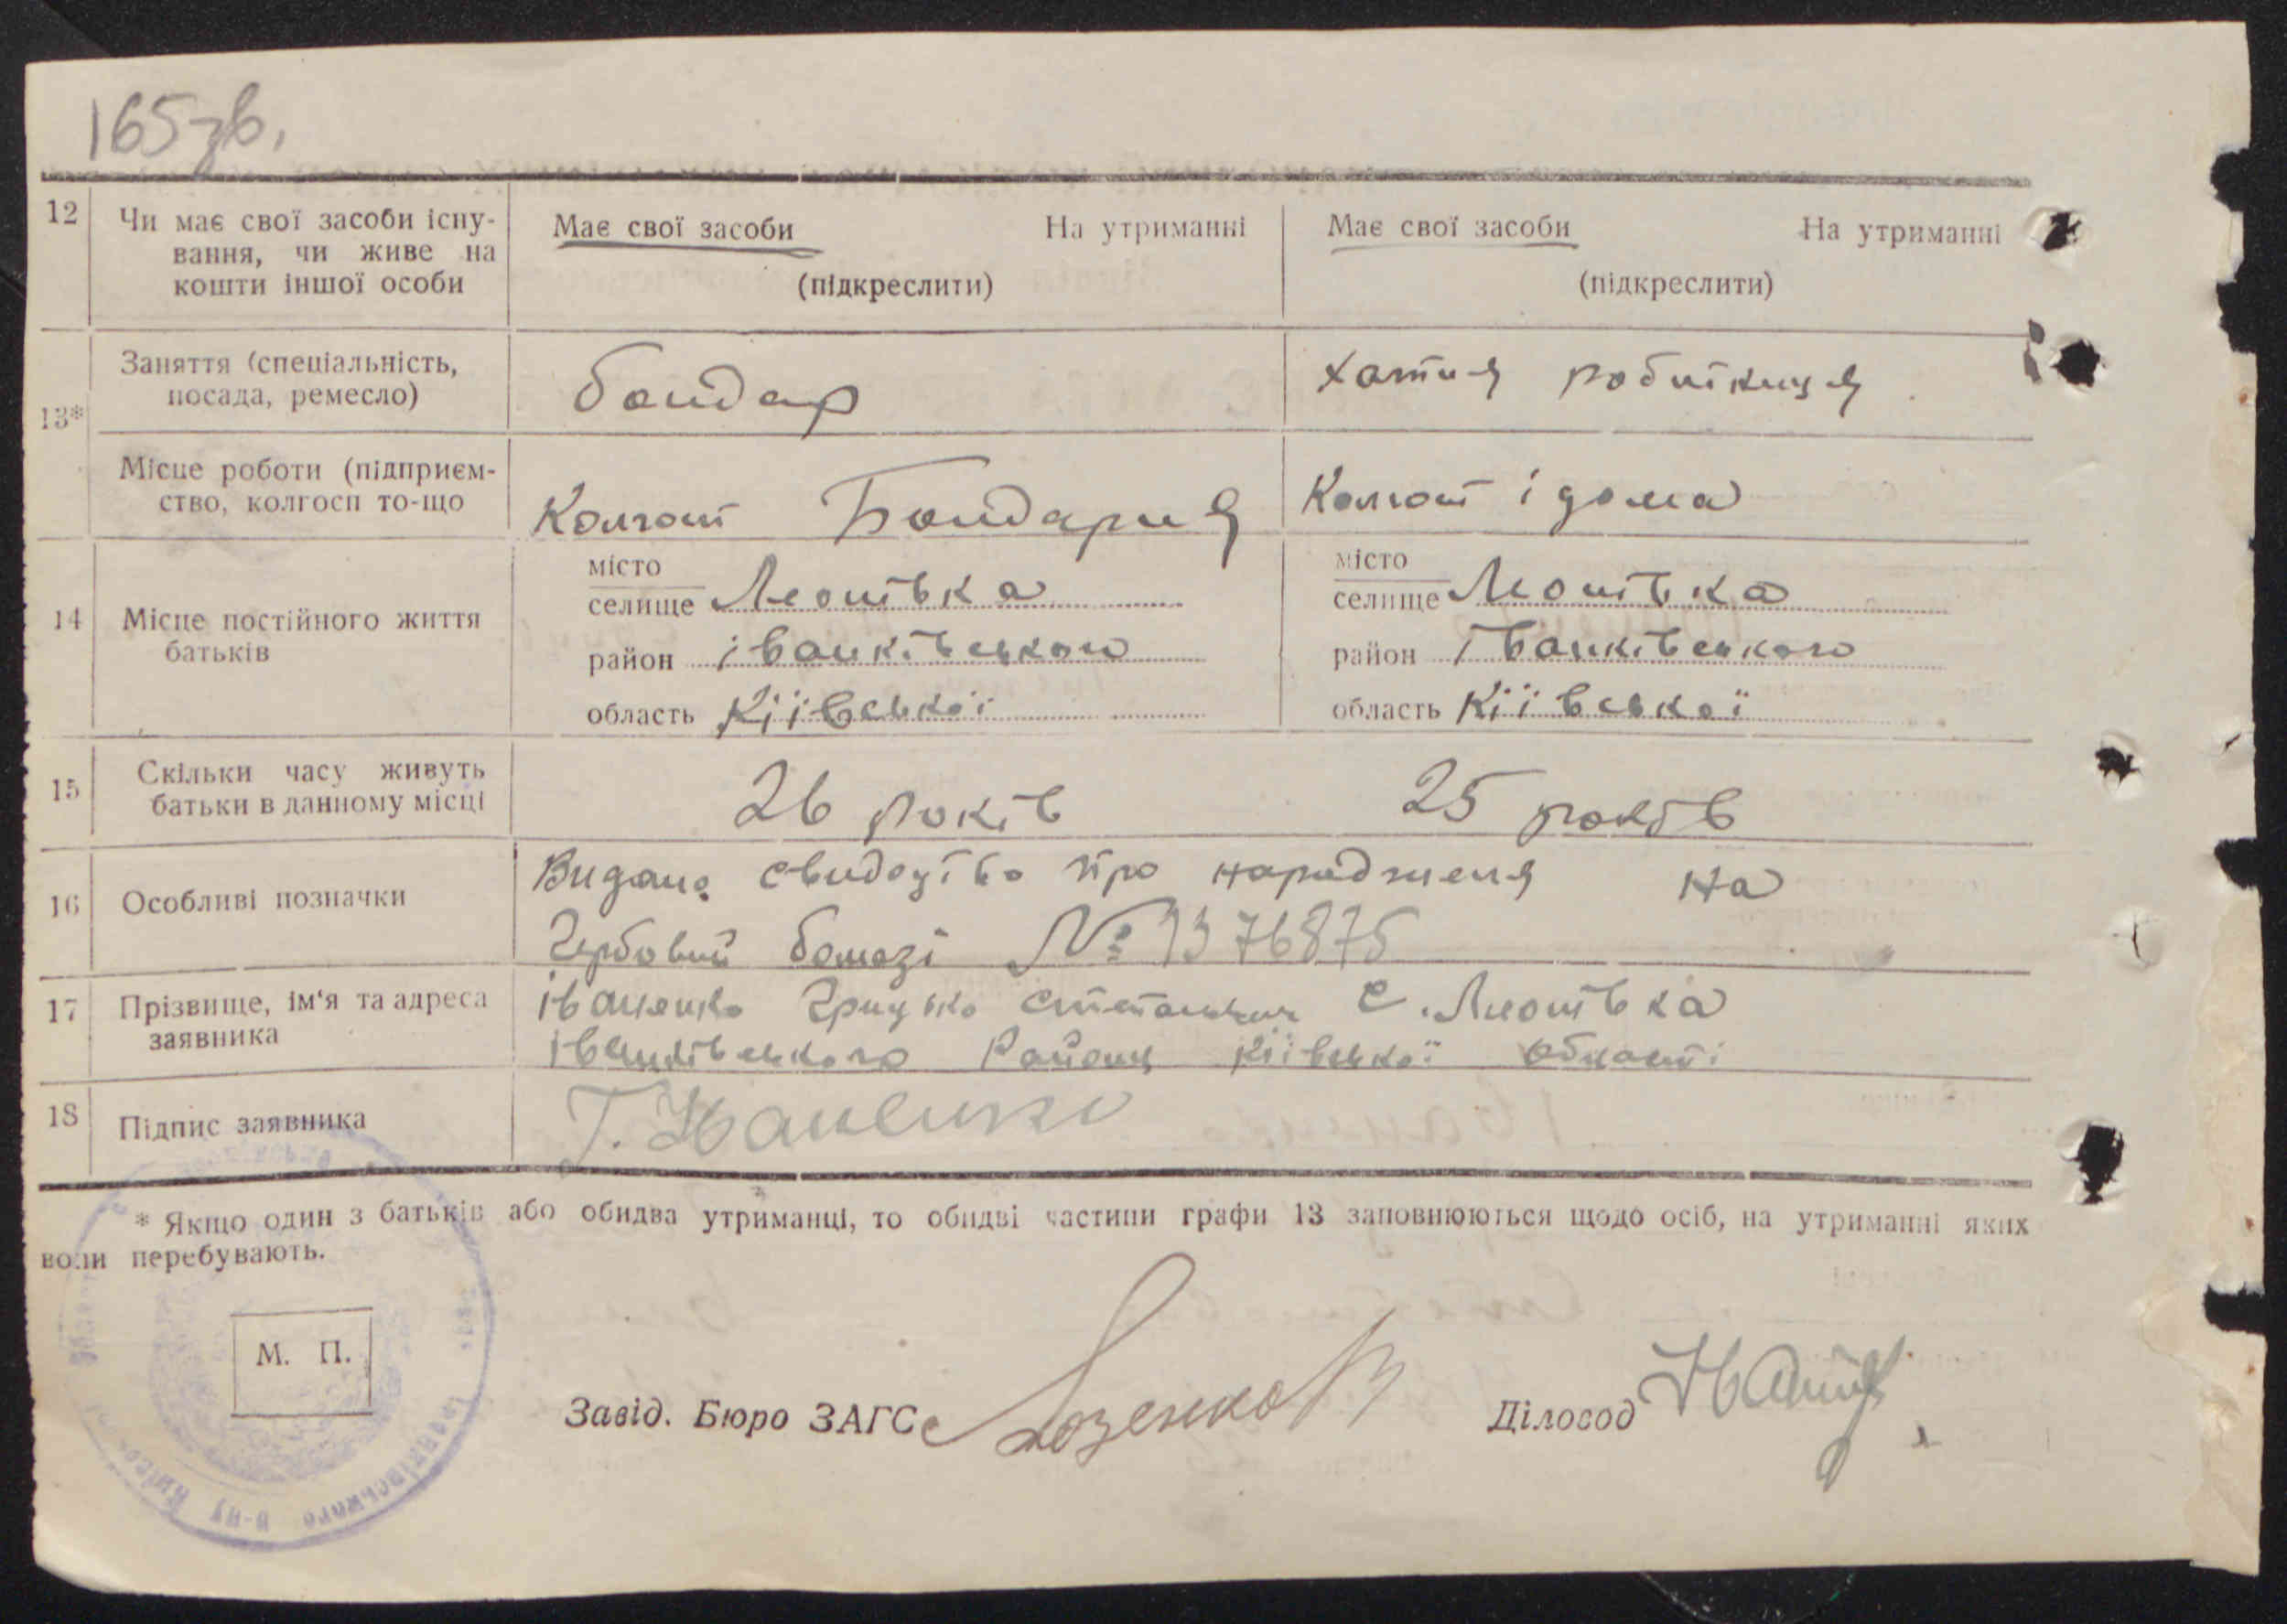 165 зв.
12 Чи має свої засоби існу-
вання, чи живе на
кошти іншої особи
Має свої засоби На утриманні
(підкреслити)
Має свої засоби На утриманні
(підкреслити)
13*
Заняття (спеціальність,
посада, ремесло)
бондар
хатня робітниця
Місце роботи (підприєм-
ство, колгосп то-що
Колгосп Бондарня
Колгосп і дома
14 Місце постійного життя
батьків
місто
селище Леонівка
район іванківського
область Кіівської
місто
селище Леонівка
район іванківського
область Кіівської
15 Скільки часу живуть
батьки в данному місці
26 років
25 років
16 Особливі позначки
Видано свидоцтво про народженя на
гербовий бомазі № 1376875
17 Прізвище, ім'я та адреса
заявника
іваненко Грицько с. Леонівка
іванківського Району Кіівської області
18 Підпис заявника
Г. Іваненко
* Якщо один з батьків або обидва утриманці, то обидві частини графи 13 заповнюються щодо осіб, на утриманні яких
вони перебувають.
М. П.
Завід. Бюро ЗАГС Лозенко
Діловод